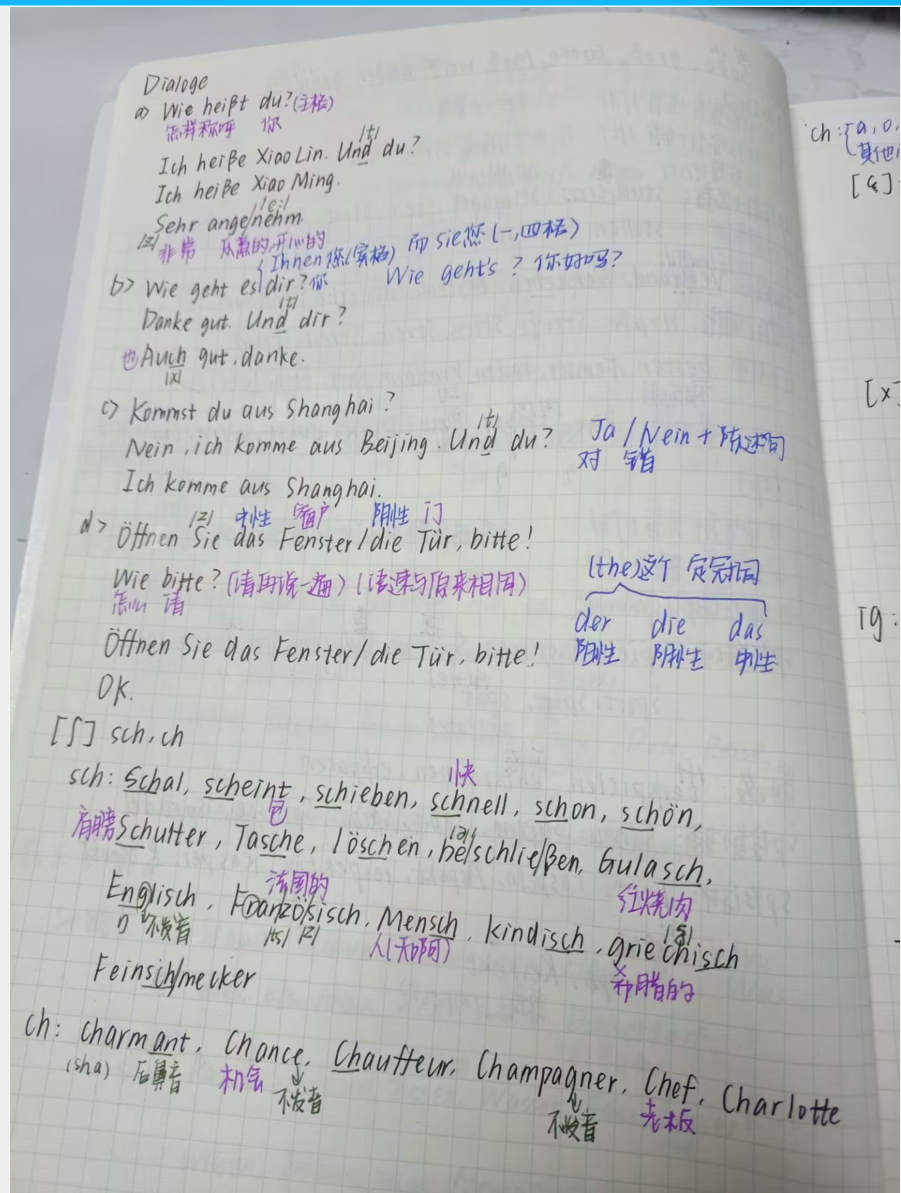 Dialoge
a) Wie heißt du? (主格)
怎样称呼 你
/t/
Ich heiße XiaoLin. Und du?
Ich heiße Xiao Ming.
/e:/
Sehr angenehm
/z/ 非常 开心的
Ihnen 您(宾格) 而 Sie您(一,四格)
b) Wie geht es dir? 你 Wie geht's? 你好吗?
/t/
Danke gut. Und dir?
也 Auch gut, danke.
/x/
c) Kommst du aus Shanghai?
/t/
Nein, ich komme aus Beijing. Und du? Ja / Nein + 陈述句
对 错
Ich komme aus Shanghai.
/z/ 中性 窗户 阴性 门
d) Öffnen Sie das Fenster/die Tür, bitte!
Wie bitte? (请再说一遍) (语速与原来相同) (the)这个 定冠词
怎么 请
der die das
阳性 阴性 中性
Öffnen Sie das Fenster/die Tür, bitte!
OK.
[ʃ] sch, ch
快
sch: Schal, scheint, schieben, schnell, schon, schön,
包
肩膀 Schulter, Tasche, löschen, beschließen, Gulasch,
法国的 红烧肉
Englisch, Französisch, Mensch, kindisch, griechisch
ŋ 不发音 /ts/ /z/ 人(天啊) 希腊的
Feinschmecker
ch: charmant, Chance, Chauffeur, Champagner, Chef, Charlotte
(sha) 后鼻音 机会 不发音 不发音 老板
ch: a, o,
其他
[ç]
[x]
ig: